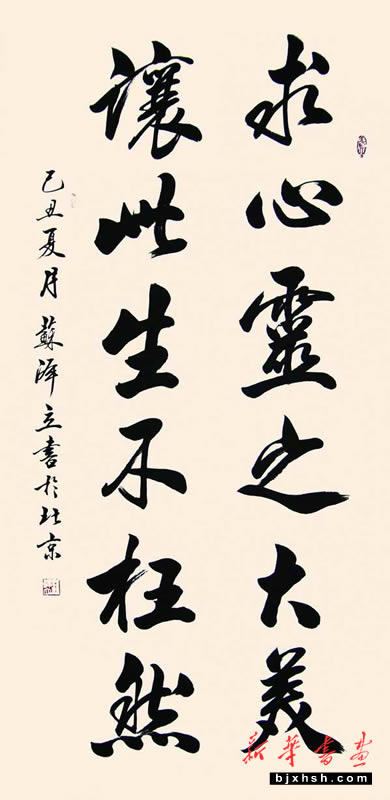 求心靈之大美
讓此生不枉然
己丑夏月蘇澤立書於北京
新華書畫
bjxhsh.com